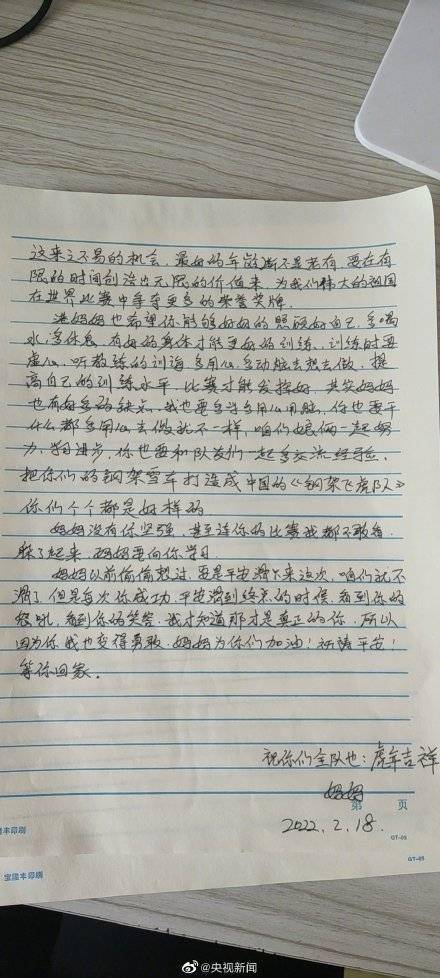 这来之不易的机会，最好的年龄渐不是老有，要在有
限的时间创造出无限的价值来，为我们伟大的祖国
在世界比赛中争夺更多的荣誉奖牌。
妈妈也希望你能够好好的照顾好自己，多喝
水，多休息，有好的身体才能更好的训练，训练时要
虚心，听教练的训诲，多用心，多动脑去想去做，提
高自己的训练水平，比赛才能发挥好，其实妈妈
也有好多的缺点，我也要多学多用心用脑，你也要干
什么都多用心去做就不一样，咱们娘俩一起努
力，一起进步，你也要和队友们一起多交流经验，
把你们的钢架雪车打造成中国的《钢架飞虎队》
你们个个都是好样的
妈妈没有你坚强，甚至连你的比赛我都不敢看，
躲了起来，妈妈要向你学习
妈妈以前偷偷想过，要是平安滑下来这次，咱们就不
滑了，但是每次你成功，平安滑到终点的时候，看到你的
怒吼，看到你的笑容，我才知道那才是真正的你，所以
因为你，我也变得勇敢，妈妈为你们加油！祈祷平安！
等你回家。
祝你们全队也：虎年吉祥
妈妈
第 页
2022.2.18.
丰印刷
GT-05
宝隆丰印刷
GT-05
@央视新闻